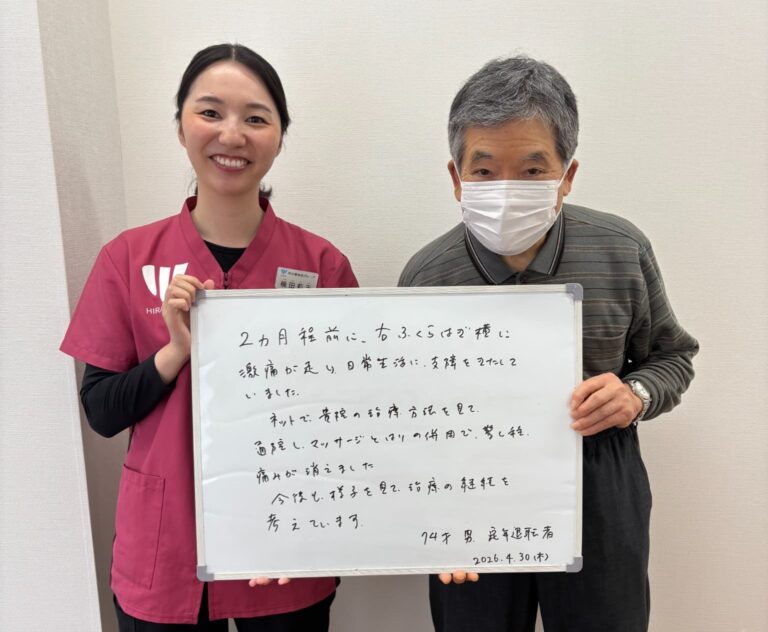 2カ月程前に、右ふくらはぎ種に
激痛が走り、日常生活に、支障をきたして
いました。
ネットで、貴院の治療方法を見て、
通院し、マッサージとはりの併用で、
痛みが消えました
今後も、様子を見て、治療の継続を
考えています。
74才 男 定年退職者
2026.4.30(木)
HIR